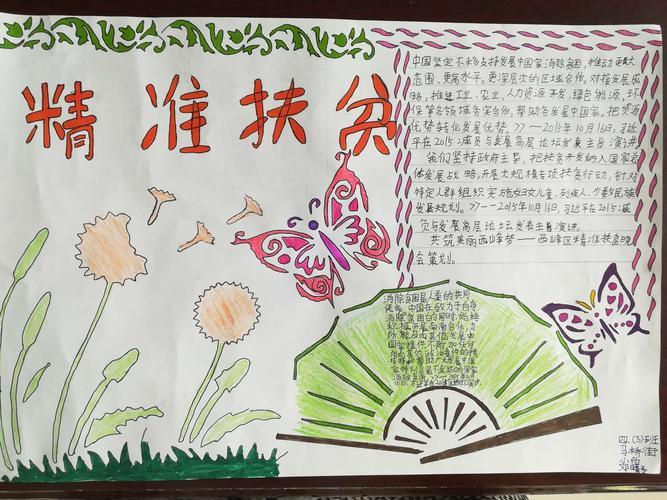 精准扶贫
中国坚定不移支持发展中国家消除贫困，推动更大
范围、更高水平、更深层次的区域合作，对接发展战
略，推进工业、农业、人力资源开发、绿色能源、环
保等各领域务实合作，帮助各发展中国家，把资源
优势转化发展优势。77—2015年10月16日，习近
平在2015减贫与发展高层论坛发表主旨演讲
我们坚持政府主导，把扶贫开发纳入国家总
体发展战略，开展大规模专项扶贫行动，针对
特定人群组织实施妇女儿童、残疾人、少数民族
发展规划。77—2015年10月16日，习近平在2015减
贫与发展高层论坛发表主旨演讲
共筑美丽西峰梦——西峰区精准扶贫晚
会策划。
消除贫困是人类的共同
使命。中国在致力于自身
消除贫困的同时，始终
积极开展南南合作，力
所能及向其他发展中
国家提供不附加任何
四、(3)班
马桥街
小学